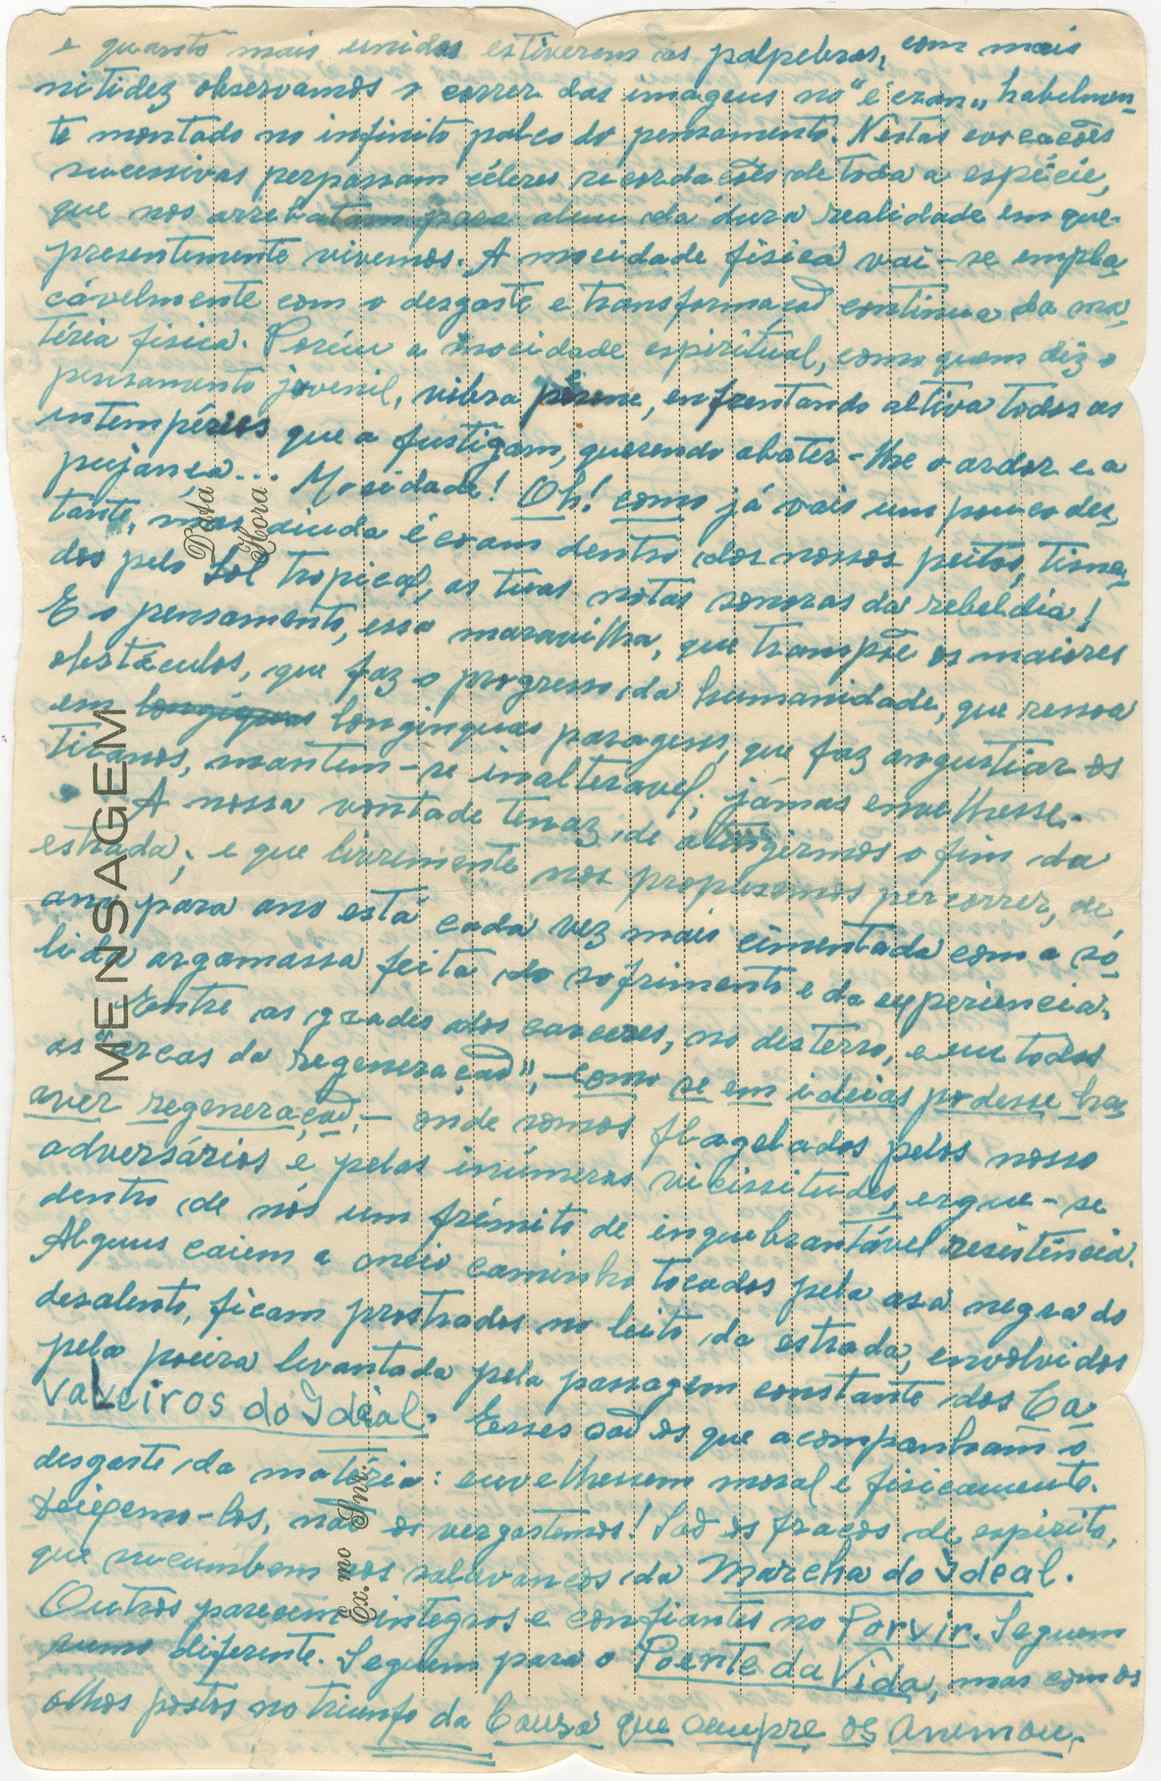 e quanto mais unidas estiverem as palpebras, com mais
nitidez observamos o correr das imagens no "écran" habelmen-
te montado no infinito palco do pensamento. Nestas evocações
sucessivas perpassam céleres recordações de toda a espécie,
que nos arrebatam para alem da dura realidade em que
presentemente vivemos. A mocidade fisica vai-se empla-
cávelmente com o desgaste e transformação continua da ma-
téria fisica. Porém a mocidade espiritual, como quem diz o
pensamento juvenil, vibra perene, enfrentando altiva todos as
intempéries que a fustigam, querendo abater-lhe o ardor e a
pujança... Mocidade! Oh! como já vais um pouco des-
tante, mas ainda écoam dentro dos nossos peitos, tisna-
dos pelo Sol tropical, as tuas notas sonoras da rebeldia!
E o pensamento, essa maravilha, que transpõe os maiores
obstáculos, que faz o progresso da humanidade, que ressoa
em longiquas longinquas paragens, que faz angustiar os
tiranos, mantem-se inalteravel; jámas envelhesse.
A nossa vontade tenaz de atingirmos o fim da
estrada, e que livremente nos propusemos percorrer, de
ano para ano está cada vez mais cimentada com a só-
lida argamassa feita do sofrimento e da experiencia.
Entre as grades dos carceres, no desterro, e em todas
as "arcas da regeneração", - como se em ideias podesse ha-
aver regeneração, - onde somos flagelados pelos nosso
adversários e pelas inúmeras vicissitudes, ergue-se
dentro de nós um frémito de inquebrantável resistência.
Alguns caiem a meio caminho tocados pela asa negra do
desalento, ficam prostrados no leito da estrada, envolvidos
pela poeira levantada pela passagem constante dos Ca-
valeiros do Ideal. Esses são os que acompanham o
desgaste da matéria: envelhessem moral e fisicamente.
Deixemo-los, não os vergastemos! São os fracos de espirito,
que sucumbem aos solavancos da Marcha do Ideal.
Outros parecem integros e confiantes no Porvir. Seguem
rumo diferente. Seguem para o Poente da Vida, mas com os
olhos postos no triunfo da Causa que sempre os animou.
MENSAGEM
Data
Hora
Ex.mo Snr.